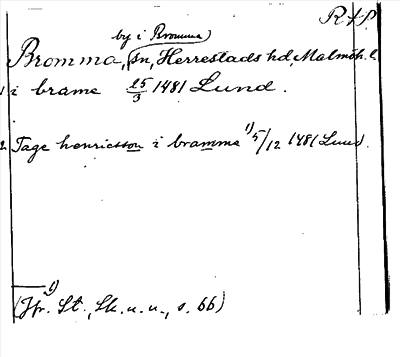 R & P
by i Bromma
Bromma, sn, Herrestads hd, Malmöh. l.
1 i brame 25/3 1481 Lund.
2. Tage henricsson i bramme 1) 5/12 1481 Lund.
1)
(Jfr. St., Sk. u. u., s. 66)